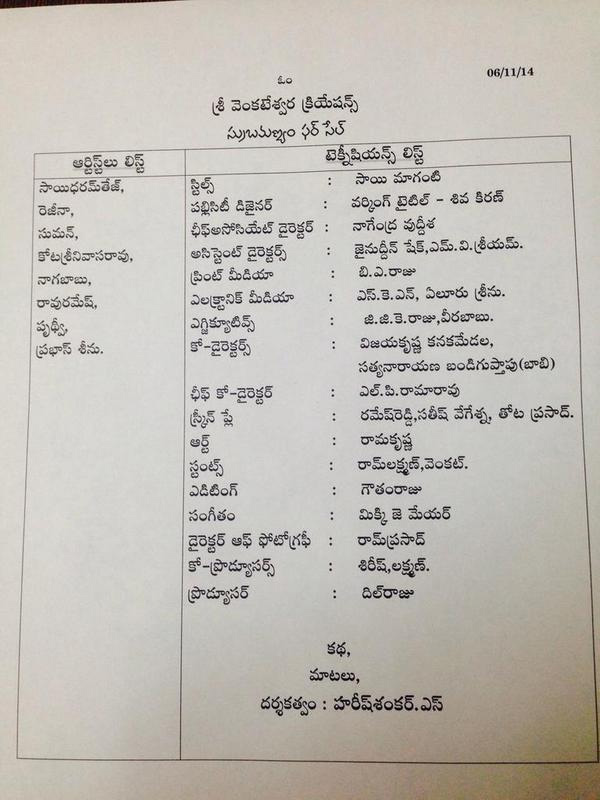 06/11/14
ఓం
శ్రీ వెంకటేశ్వర క్రియేషన్స్
సుబ్రమణ్యం ఫర్ సేల్
ఆర్టిస్ట్‌లు లిస్ట్
సాయిధరమ్‌తేజ్,
రెజీనా,
సుమన్,
కోటశ్రీనివాసరావు,
నాగబాబు,
రావురమేష్,
పృథ్వీ,
ప్రభాస్ శీను.
టెక్నీషియన్స్ లిస్ట్
స్టిల్స్ : సాయి మాగంటి
పబ్లిసిటీ డిజైనర్ : వర్కింగ్ టైటిల్ - శివ కిరణ్
ఛీఫ్‌అసోసియేట్ డైరెక్టర్ : నాగేంద్ర వుద్దీశ
అసిస్టెంట్ డైరెక్టర్స్ : జైనుద్దీన్ షేక్,ఎమ్.వి.శ్రీయమ్.
ప్రింట్ మీడియా : బి.ఎ.రాజు
ఎలక్ట్రానిక్ మీడియా : ఎస్.కె.ఎన్, ఏలూరు శ్రీను.
ఎగ్జిక్యూటివ్స్ : జి.జి.కె.రాజు,వీరబాబు.
కో-డైరెక్టర్స్ : విజయకృష్ణ కనకమేదల,
సత్యనారాయణ బండిగుప్తాపు(బాబి)
ఛీఫ్ కో-డైరెక్టర్ : ఎల్.పి.రామారావు
స్క్రీన్ ప్లే : రమేష్‌రెడ్డి,సతీష్ వేగేశ్న, తోట ప్రసాద్.
ఆర్ట్ : రామకృష్ణ
స్టంట్స్ : రామ్‌లక్ష్మణ్,వెంకట్.
ఎడిటింగ్ : గౌతంరాజు
సంగీతం : మిక్కి జె మేయర్
డైరెక్టర్ ఆఫ్ ఫోటోగ్రఫీ : రామ్‌ప్రసాద్
కో-ప్రొడ్యూసర్స్ : శిరీష్,లక్ష్మణ్.
ప్రొడ్యూసర్ : దిల్‌రాజు
కథ,
మాటలు,
దర్శకత్వం : హరీష్‌శంకర్.ఎస్